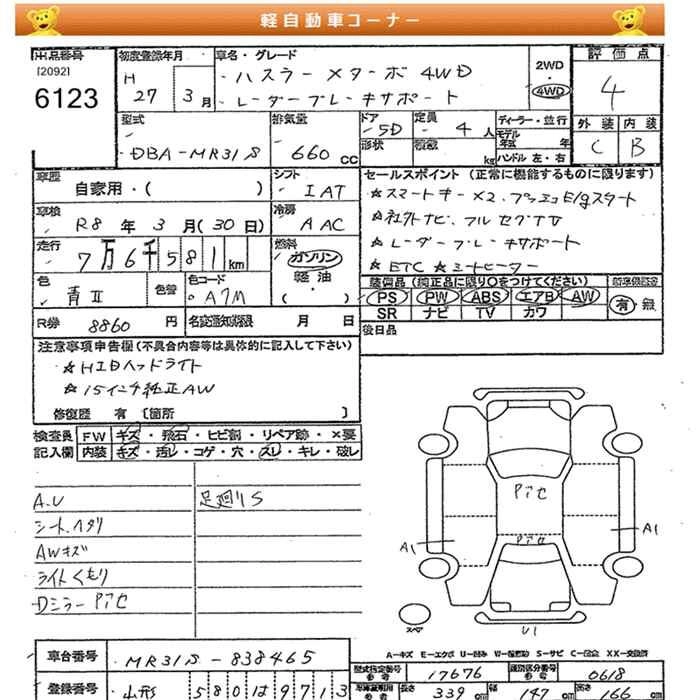 軽自動車コーナー
出品番号
[2092]
6123
初度登録年月
H 27 3月
車名・グレード
ハスラー Xターボ 4WD
レーダーブレーキサポート
2WD
・
4WD
評価点
4
外装 内装
C B
型式
DBA-MR31S
排気量
660 cc
ドア
5D
形状
定員
4 人
積載
kg
ディーラー・並行
モデル年式 年
ハンドル 左・右
車歴
自家用・( )
シフト
IAT
車検
R8年 3月(30日)
冷房
AAC
走行
7万6千581km
燃料
ガソリン
軽油
・( )
色
青II
色替
色コード
A7M
R券 8860 円
名変通知期限 月 日
セールスポイント (正常に機能するものに限ります)
☆スマートキー×2、プッシュE/gスタート
☆社外ナビ、フルセグTV
☆レーダーブレーキサポート
☆ETC ☆シートヒーター
装備品(純正品に限り○をつけてください)
PS PW ABS エアB AW
SR ナビ TV カワ
有 無
後日品
注意事項申告欄(不具合内容等は具体的に記入して下さい)
☆HIDヘッドライト
☆15インチ純正AW
修復歴 有 〔箇所 〕
検査員 FW キズ・飛石・ヒビ割・リペア跡・×要
記入欄 内装 キズ・汚レ・コゲ・穴・スレ・キレ・破レ
A.U
シートヘタリ
AWキズ
ライトくもり
Dミラー Pアセ
足廻りS
Pアセ
Pアセ
A1
A1
U1
スペア
A-キズ E-エクボ U-凹み W-補修跡 S-サビ C-腐食 XX-交換済
車台番号 MR31S-838465
型式指定番号 17676
類別区分番号 0618
登録番号 山形 580 は 9713
長さ 339 cm 幅 147 cm 高さ 166 cm